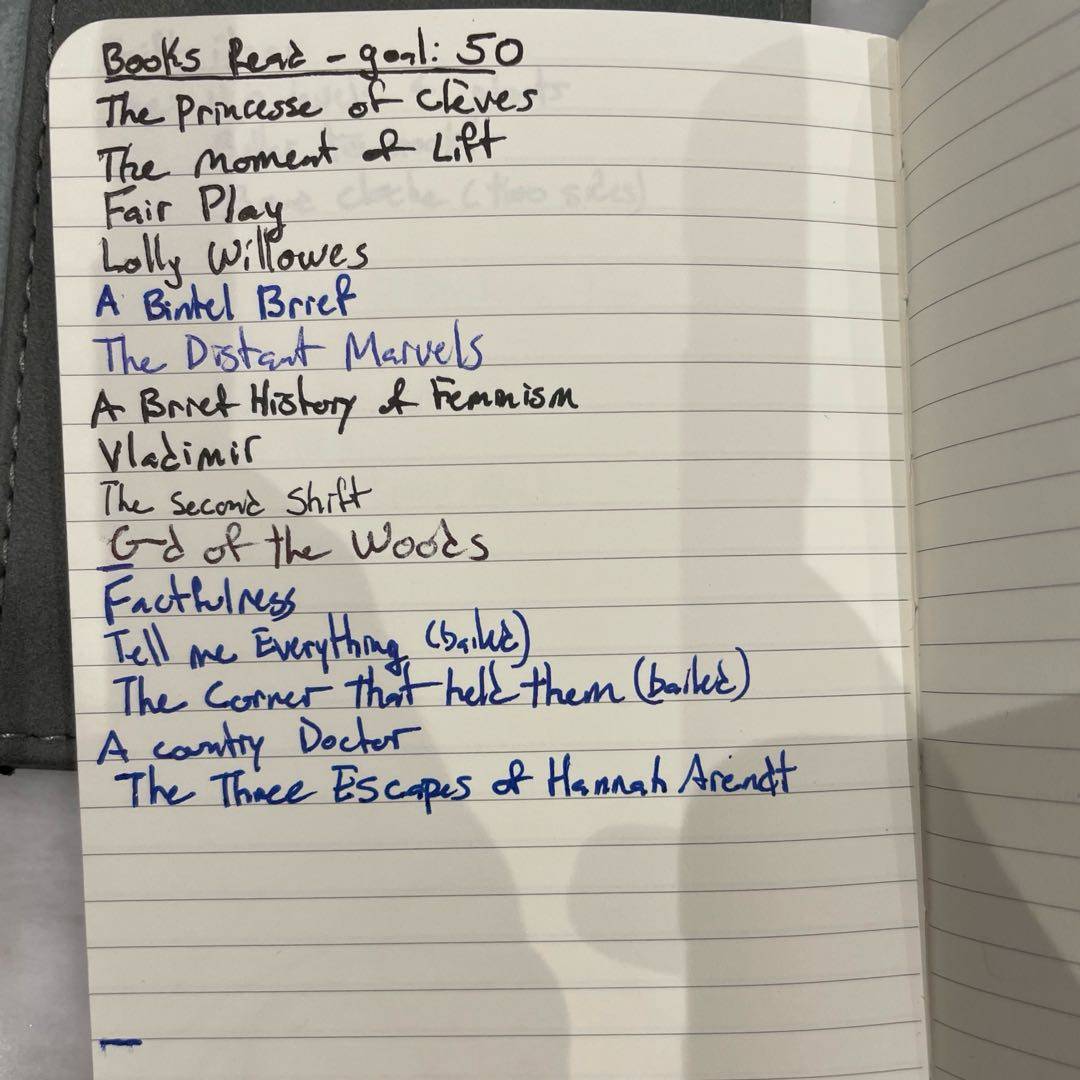 Books Read - goal: 50
The Princesse of Clèves
The Moment of Lift
Fair Play
Lolly Willowes
A Bintel Brief
The Distant Marvels
A Brief History of Feminism
Vladimir
The Second Shift
G-d of the Woods
Factfulness
Tell me Everything (bailed)
The Corner that held them (bailed)
A country Doctor
The Three Escapes of Hannah Arendt